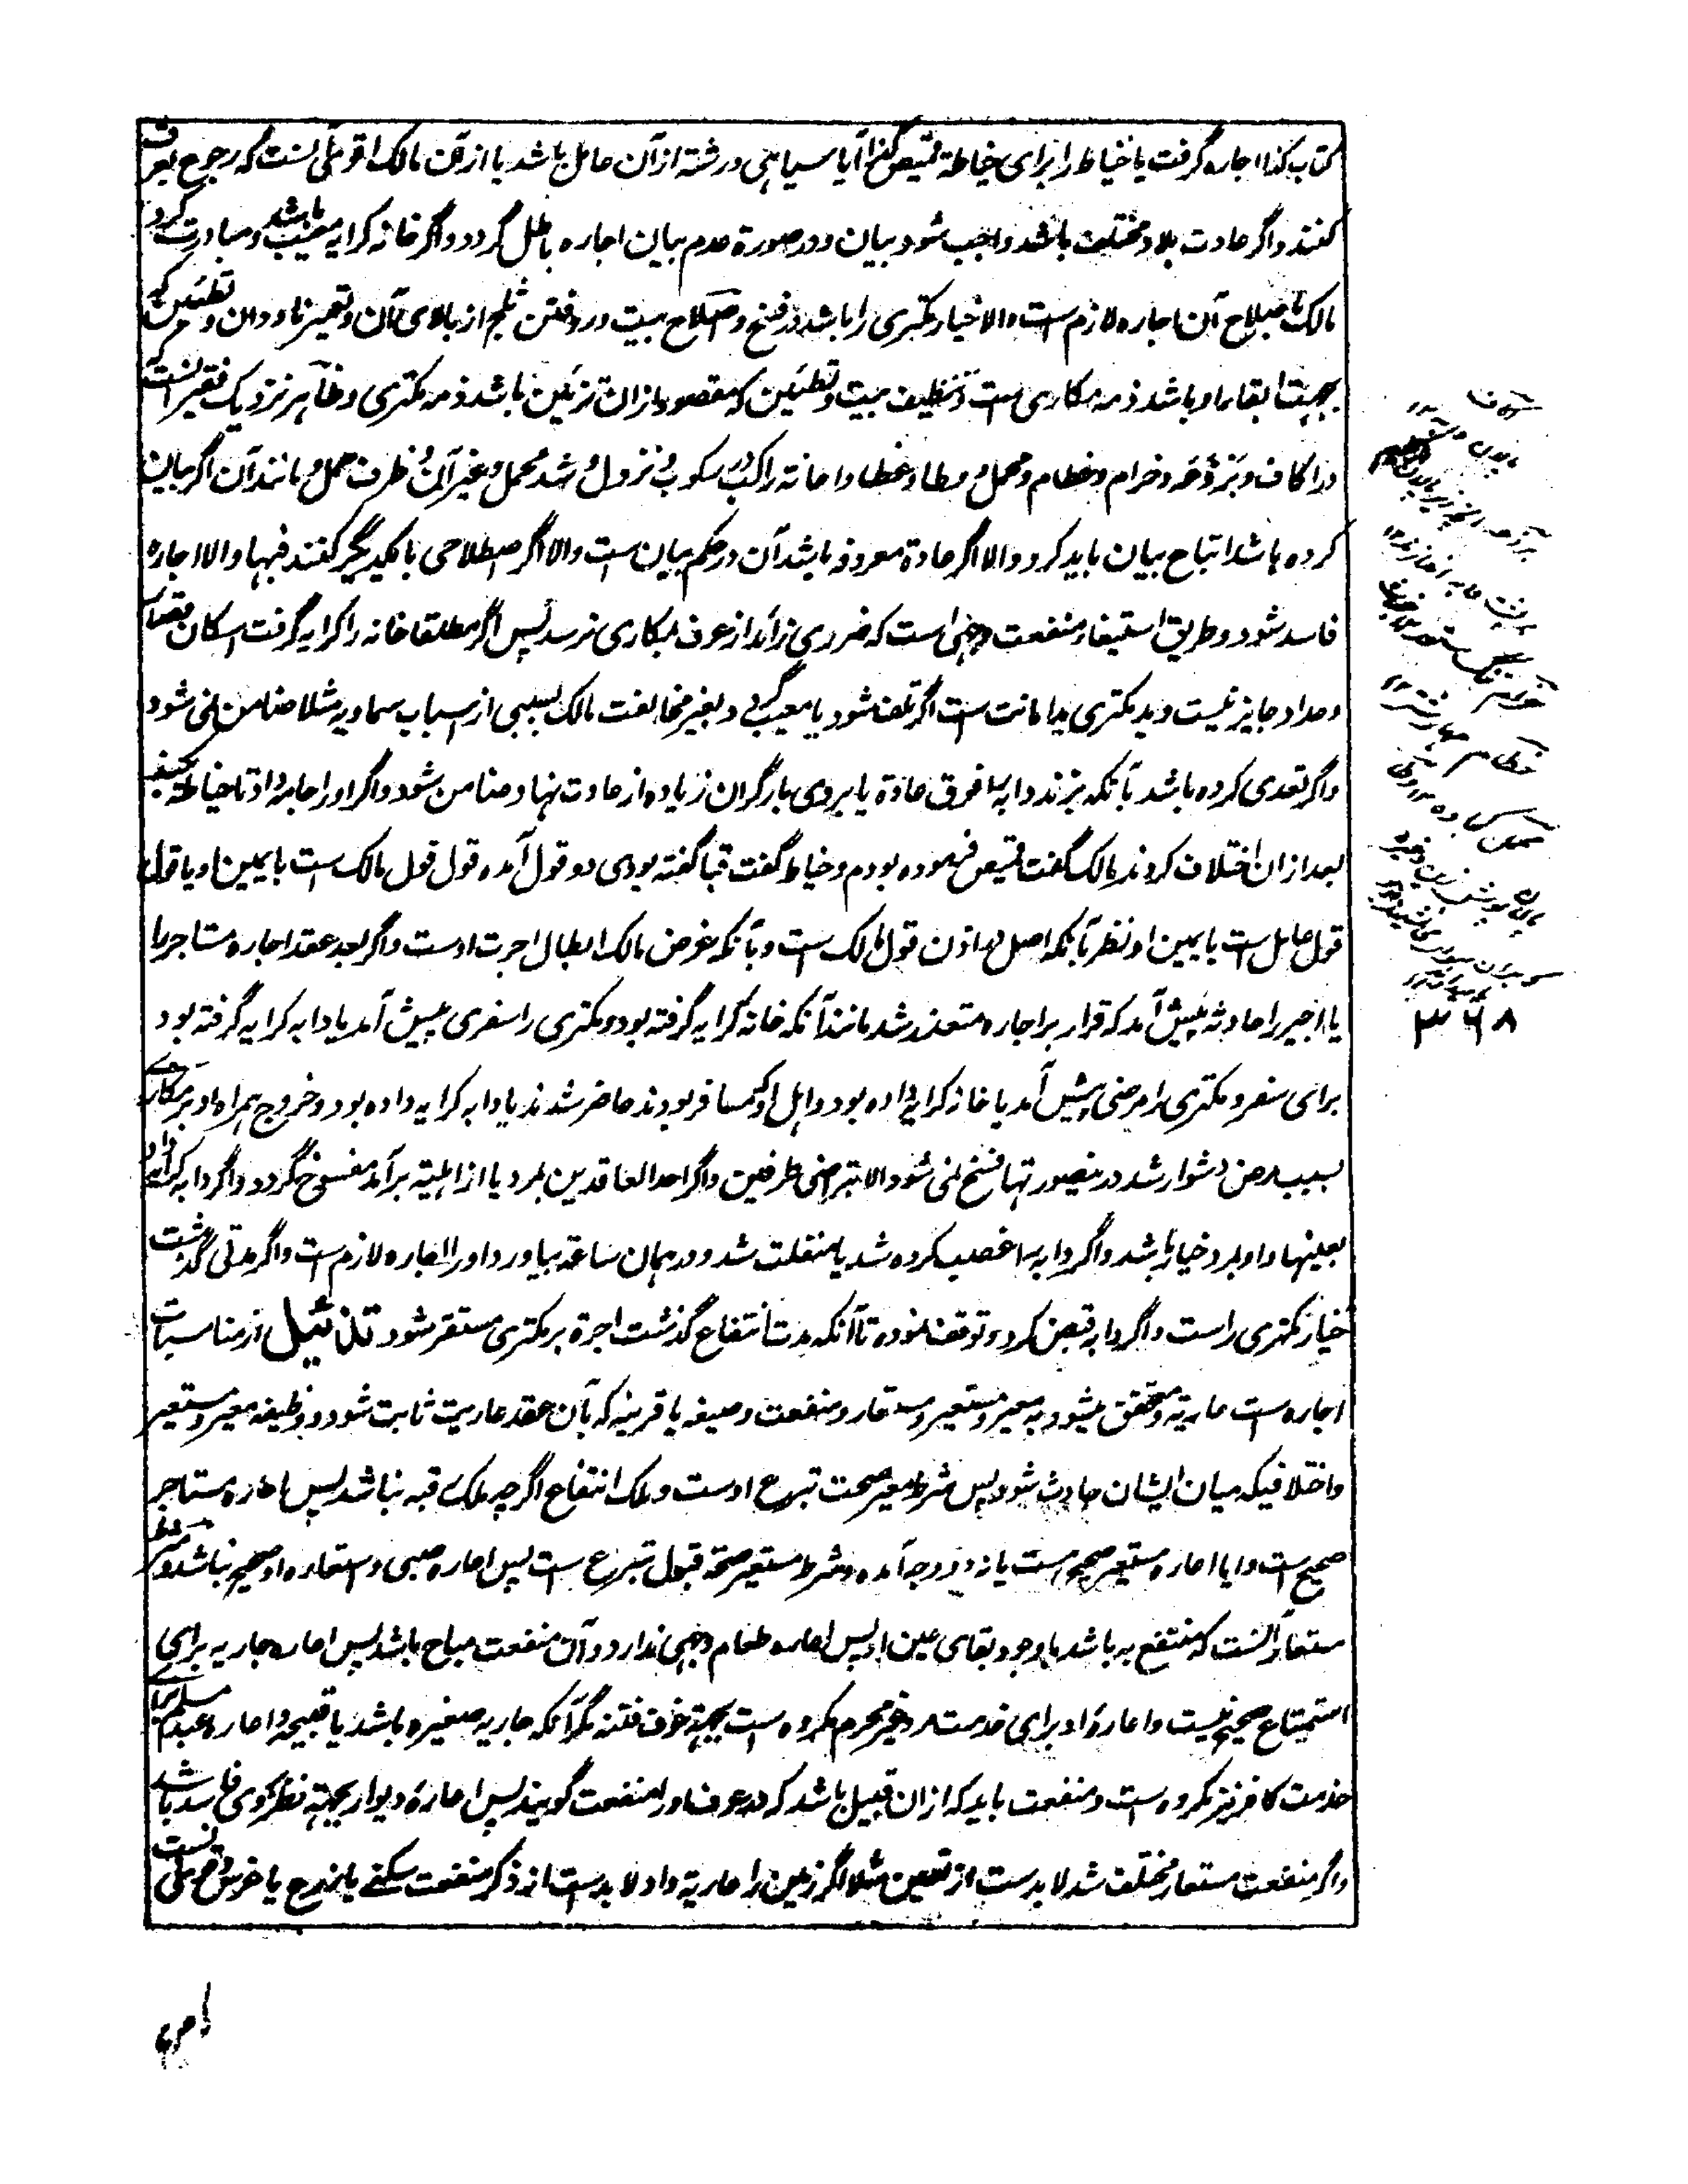 کتاب کذا اجاره گرفت یا خیاط را برای خیاطة قمیص کذا آیا سیاهی و رشته از آن عامل باشد یا از آن مالک اقوی آنست که رجوع بعرف
کنند و اگر عادت بلاد مختلف باشد واجب شود بیان و در صورة عدم بیان اجاره باطل گردد و اگر خانه کرایه معیب باشد و مبادرت کرد
مالک باصلاح آن اجاره لازم است والا خیار مکتری را باشد در فسخ و اصلاح بیت و روفتن ثلج از بالای آن و تعمیر ناودان و تطیین که
بجهت ابقاء او باشد ذمه مکاری است و تنظیف بیت و تطیین که مقصود از ان تزیین باشد ذمه مکتری و ظاهر نزدیک فقیر آنست
در اکاف و بردعه و خزام و خطام و محمل و وطا و غطا و اعانة راکب در رکوب و نزول و شد محمل و غیر آن و ظرف حمل و مانند آن اگر بیان
کرده باشد اتباع بیان باید کرد والا اگر عادة معروفه باشد آن در حکم بیان است والا اگر اصطلاحی با یکدیگر کنند فبها والا اجاره
فاسد شود و طریق استیفاء منفعت وجهی است که ضرری زائد از عرف بمکاری نرسد پس اگر مطلقا خانه را کرایه گرفت اسکان قصار
و حداد جایز نیست و ید مکتری ید امانت است اگر تلف شود یا معیب گردد بغیر مخالفت مالک بسببی از اسباب سماویه مثلا ضامن نمی شود
و اگر تعدی کرده باشد بآنکه بزند دابه را فوق عادة یا بروی بار گران زیاده از عادت نهاد ضامن شود و اگر او را جامه داد تا خیاطه کند
بعد از ان اختلاف کردند مالک گفت قمیص فرموده بودم و خیاط گفت قبا گفته بودی دو قول آمده قول قول مالک است با یمین او یا قول
قول عامل است با یمین او نظر بآنکه اصل در اذن قول مالک است و بآنکه غرض مالک ابطال اجرت اوست و اگر بعد عقد اجاره مستاجر را
یا اجیر را حادثه پیش آمد که قرار بر اجاره متعذر شد مانند آنکه خانه کرایه گرفته بود و مکتری را سفری پیش آمد یا دابه کرایه گرفته بود
برای سفر و مکتری را مرضی پیش آمد یا خانه کرایه داده بود و اهل او که مسافر بودند حاضر شدند یا دابه کرایه داده بود و خروج همراه او بر مکاری
بسبب مرض دشوار شد درینصورتها فسخ نمی شود الا بتراضی طرفین و اگر احد العاقدین بمرد یا از اهلیة برآمد مفسوخ گردد و اگر دابه کرایه داد
بعینها و او بمرد خیار باشد و اگر دابه را غصب کرده شد یا منفلت شد و در همان ساعة بیاورد او را اجاره لازم است و اگر مدتی گذشت
خیار مکتری راست و اگر دابه قبض کرد و توقف نموده تا آنکه مدت انتفاع گذشت اجرة بر مکتری مستقر شود تذئیل از مناسبات
اجاره است عاریة و متحقق میشود بمعیر و مستعیر و مستعار و منفعت و صیغه یا قرینه که بآن عقد عاریت ثابت شود و وظیفه معیر و مستعیر
و اختلافیکه میان ایشان حادث شود پس شرط معیر صحت تبرع اوست و ملک انتفاع اگرچه ملک رقبه نباشد پس اعاره مستاجر
صحیح است و ایا اعاره مستعیر صحیح است یا نه دو وجه آمده و شرط مستعیر صحة قبول تبرع است پس اعاره صبی و استعاره او صحیح نباشد و شرط
مستعار آنست که منتفع به باشد با وجود بقای عین او پس اعاره طعام وجهی ندارد و آن منفعت مباح باشد پس اعاره جاریه برای
استمتاع صحیح نیست و اعارهٔ او برای خدمت مرد غیر محرم مکروه است بجهة خوف فتنه مگر آنکه جاریه صغیره باشد یا قبیحه و اعاره عبد مسلم برای
خدمت کافر نیز مکروه است و منفعت باید که ازان قبیل باشد که در عرف او را منفعت گویند پس اعارهٔ دیوار بجهة نظر کردن فاسد باشد
و اگر منفعت مستعار مختلف شد لابد ست از تعیین مثلا اگر زمین را عاریة داد لابد است از ذکر منفعت سکنے یا زرع یا غرس و حق آنست
۳۶۸